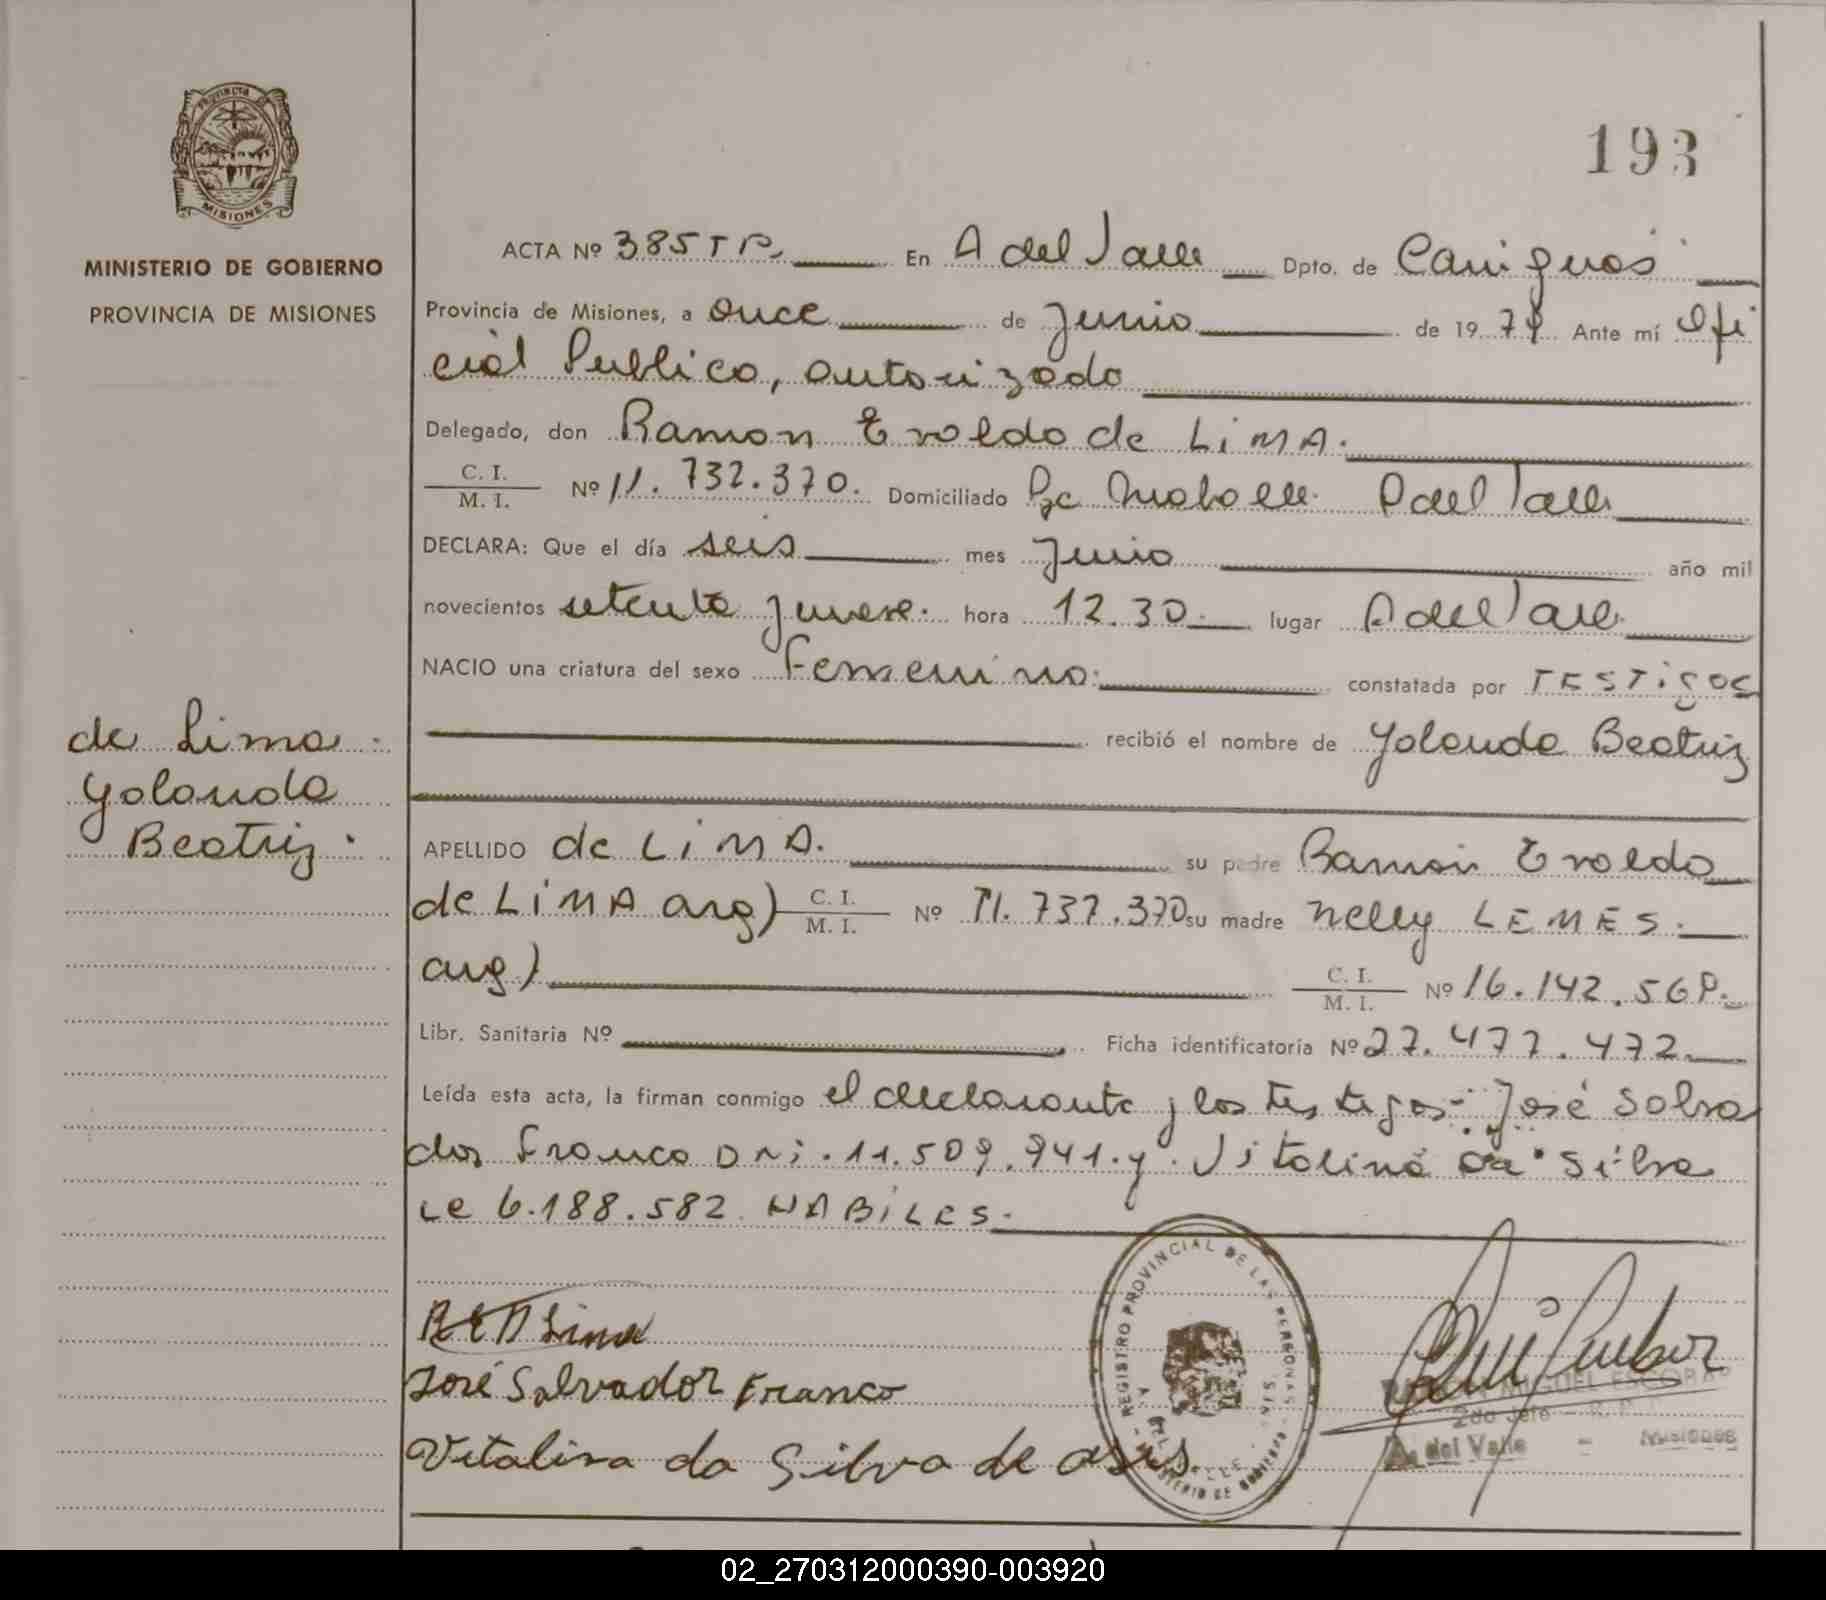 PROVINCIA DE
MISIONES
MINISTERIO DE GOBIERNO
PROVINCIA DE MISIONES
193
ACTA Nº 385 TP. En A del Valle Dpto. de Cainguás
Provincia de Misiones, a once de junio de 1979 Ante mí Ofi
cial Publico, autorizado
Delegado, don Ramon Evaldo de LiMA.
C. I. / M. I. Nº 11.732.370. Domiciliado A del Valle
DECLARA: Que el día seis mes junio año mil
novecientos setenta y nueve. hora 12.30. lugar A del Valle
NACIO una criatura del sexo Femenino: constatada por TESTigos
recibió el nombre de Yolanda Beatriz
de Lima.
Yolanda
Beatriz.
APELLIDO de LiMA. su padre Ramon Evaldo
de LiMA arg) C. I. / M. I. Nº 11.732.370 su madre Nelly LEMES.
arg) C. I. / M. I. Nº 16.142.569.
Libr. Sanitaria Nº Ficha identificatoria Nº 27.477.472.
Leída esta acta, la firman conmigo el declarante y los testigos: José Salva
dor Franco DNi. 11.509.941. y Vitalina da Silva
LC 6.188.582 HABiLES.
Lima
José Salvador Franco
Vitalina da Silva de asis
REGISTRO PROVINCIAL DE LAS PERSONAS
MIGUEL ESCOBAR
2do Jefe - R. P.
A. del Valle - Misiones
02_270312000390-003920